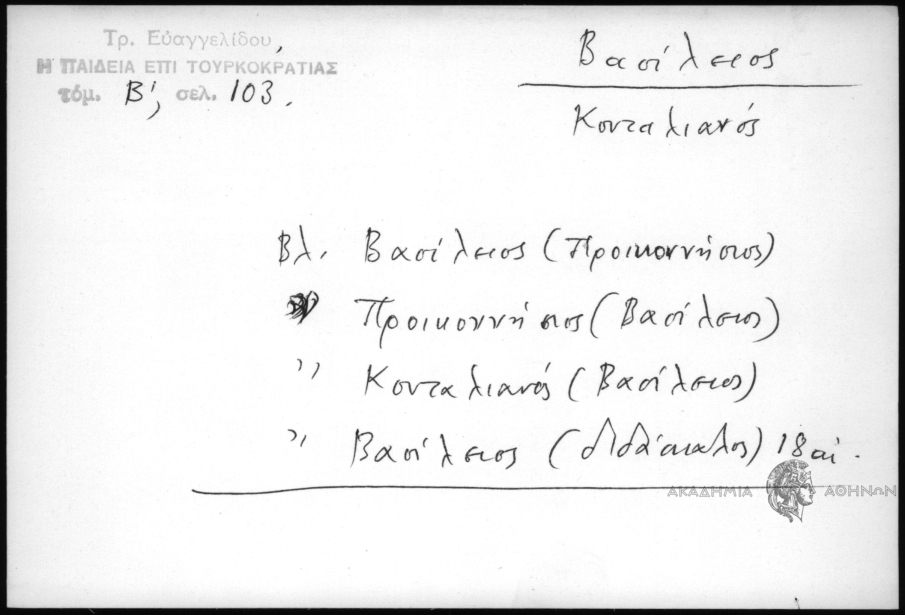 Τρ. Εὐαγγελίδου,
Η ΠΑΙΔΕΙΑ ΕΠΙ ΤΟΥΡΚΟΚΡΑΤΙΑΣ
τόμ. Β', σελ. 103.
Βασίλειος
Κουταλιανός
Βλ. Βασίλειος (Προικοννήσιος)
Προικοννήσιος (Βασίλειος)
〃 Κουταλιανός (Βασίλειος)
〃 Βασίλειος (διδάσκαλος) 18 αἰ.
ΑΚΑΔΗΜΙΑ ΑΘΗΝΩΝ